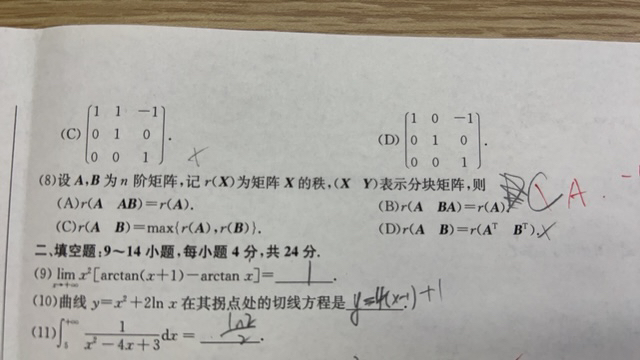 (C) (1 1 -1 0 1 0 0 0 1). (D) (1 0 -1 0 1 0 0 0 1).
(8)设 A,B 为 n 阶矩阵,记 r(X)为矩阵 X 的秩,(X Y)表示分块矩阵,则 C A.
(A)r(A AB)=r(A). (B)r(A BA)=r(A).
(C)r(A B)=max{r(A),r(B)}. (D)r(A B)=r(Aᵀ Bᵀ).
二、填空题:9~14 小题,每小题 4 分,共 24 分.
(9) lim x→+∞ x²[arctan(x+1)-arctan x]= 1 .
(10)曲线 y=x²+2ln x 在其拐点处的切线方程是 y=4(x-1)+1
(11)∫₅⁺∞ 1/(x²-4x+3) dx = ln2/2 .